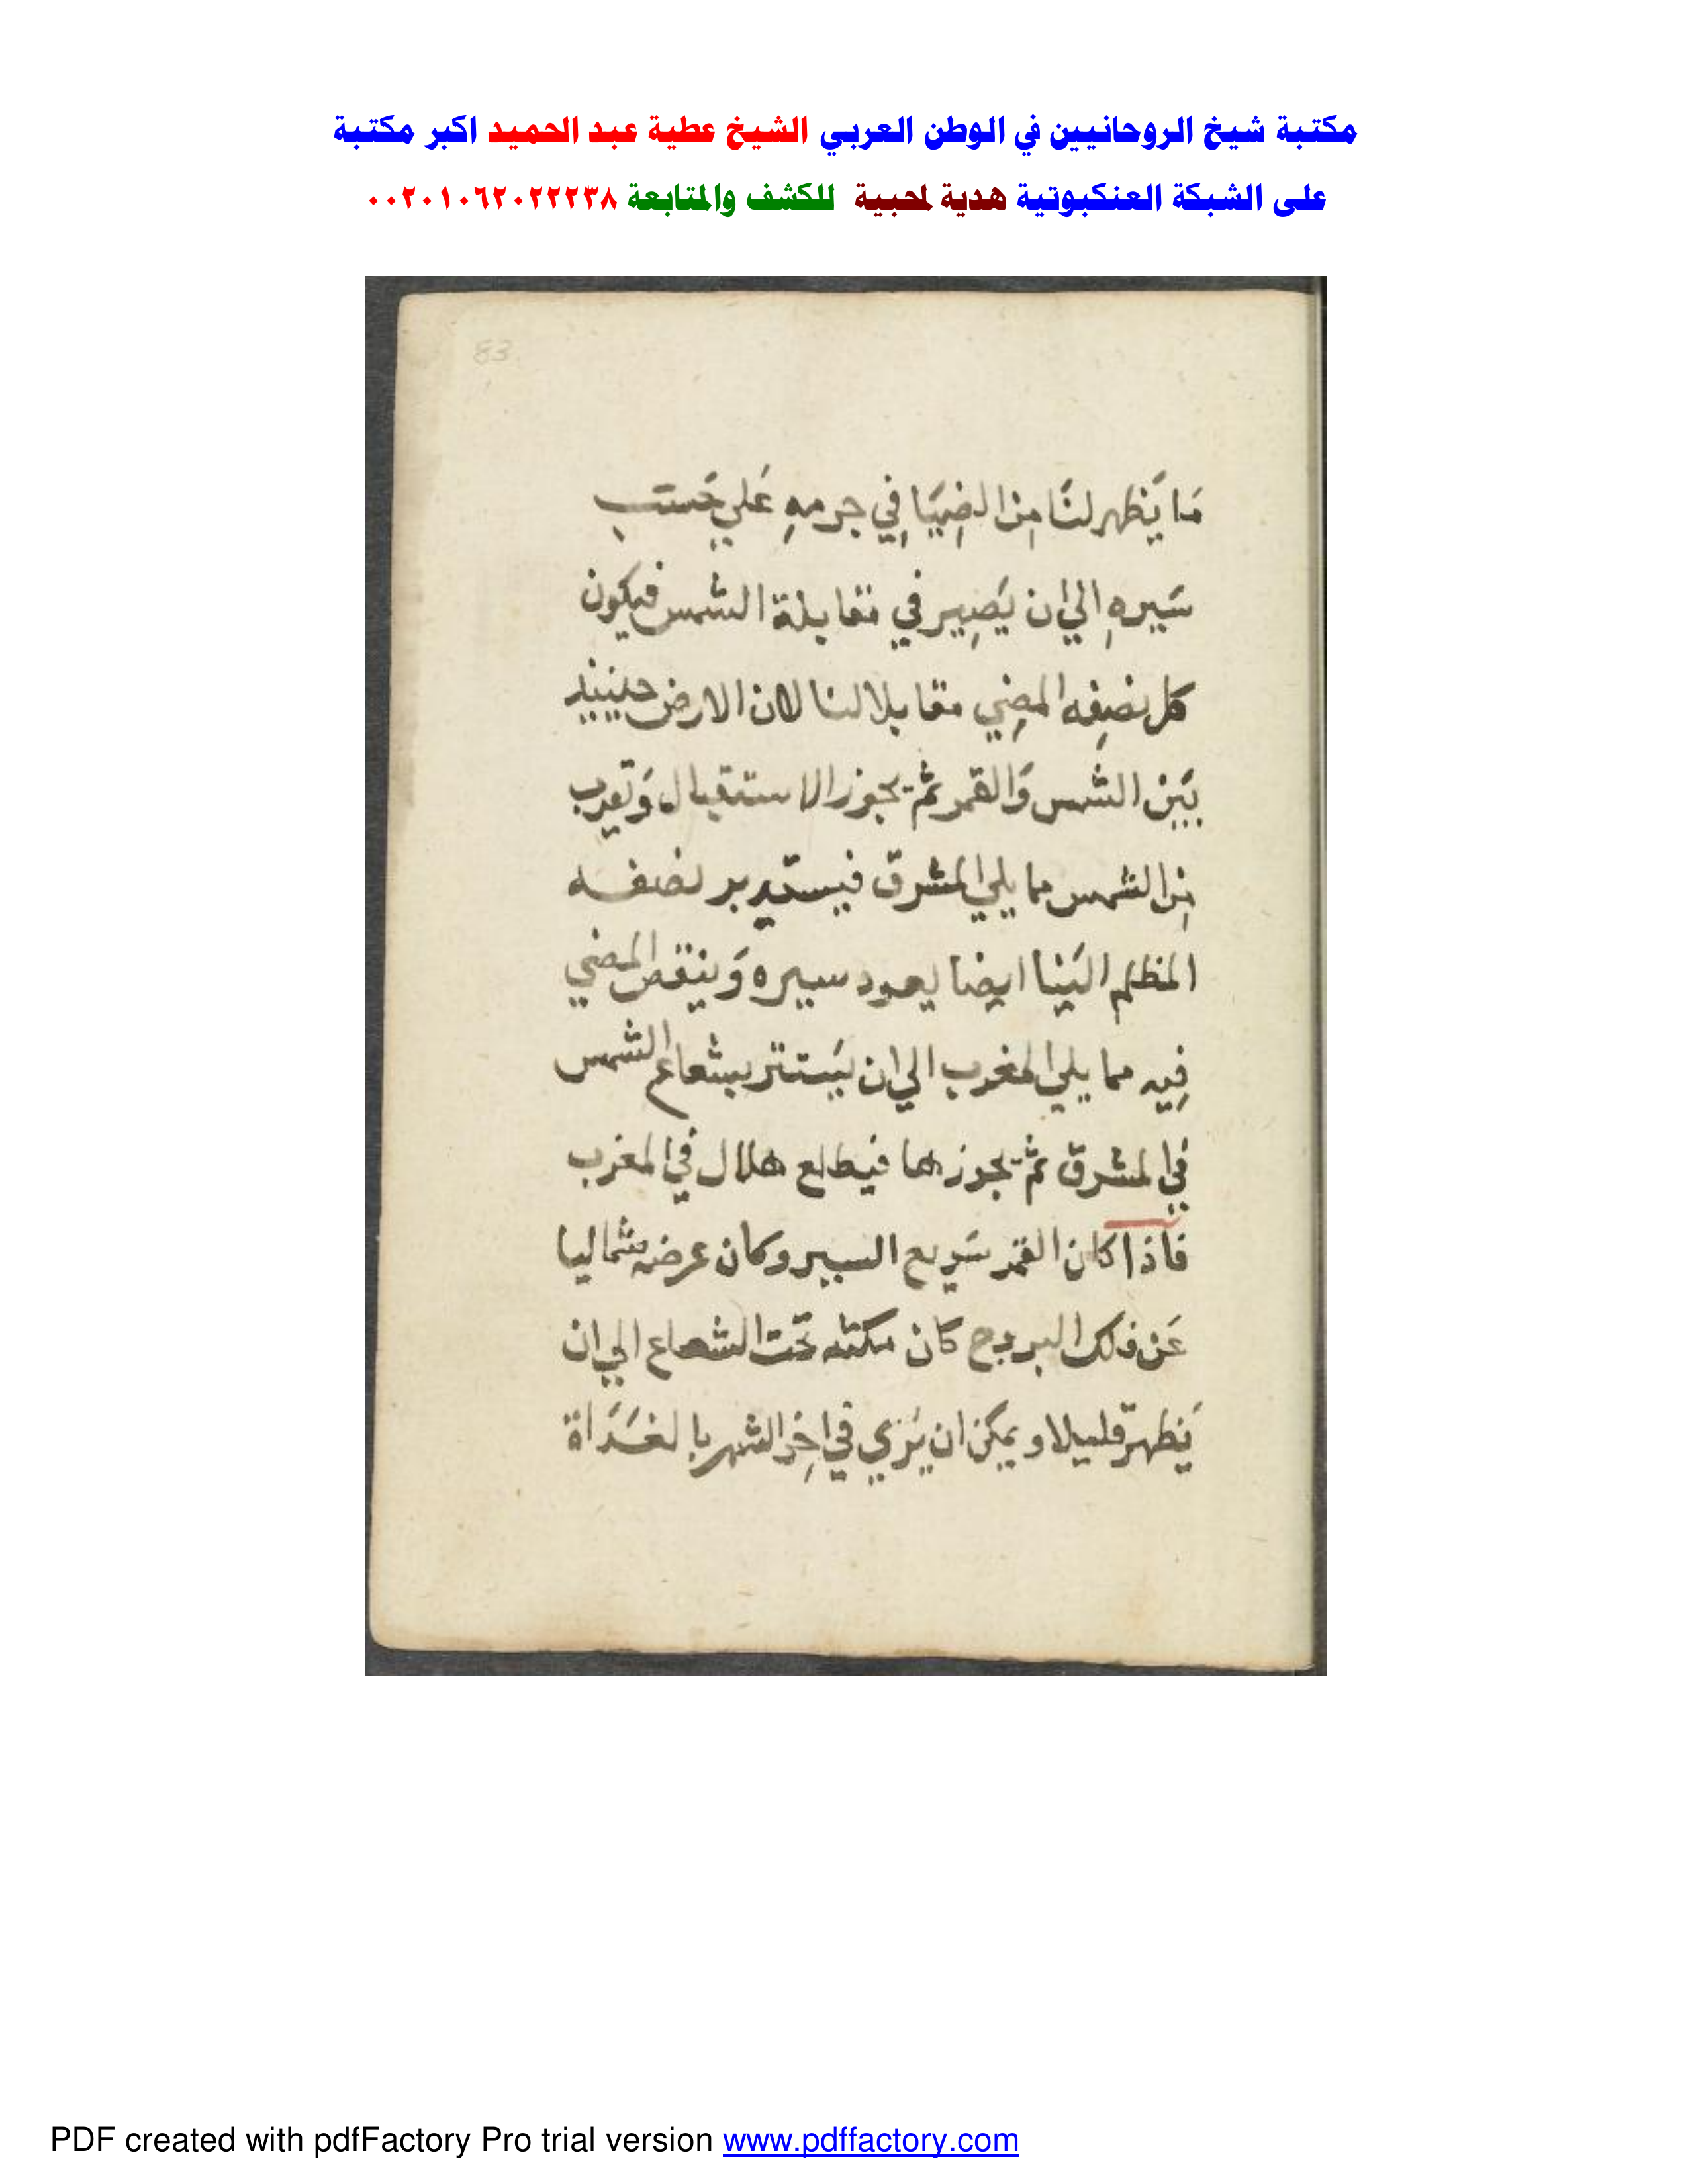 مكتبة شيخ الروحانيين في الوطن العربي الشيخ عطية عبد الحميد اكبر مكتبة
على الشبكة العنكبوتية هدية لمحبية للكشف والمتابعة ٠٠٢٠١٠٦٢٠٢٢٢٣٨
83
مَا يَظهر لنَا مِن الضِيَا فِي جرمهِ عَلي حَسَب
سَيرهِ الي ان يَصِير في مقابلة الشمس فيكون
كل نصِفه المضِي مقابلا لنا لان الارض حينيذ
بَيِن الشمس وَالقمر ثم يجوز الاستقبال وَيَقرب
مِن الشمس مما يلي المشرق فيستدير نصفه
المظلم الَينا ايضا يعود سيره وَينقص المضي
فِيه مما يلي المغرب الي ان يَستتر بشعاع الشمس
في المشرق ثم يجوزها فيطلع هلال في المغرب
فاَذا كان القمر سَريع السير وكان عرضه شماليا
عَن فلك البروج كان مكثه تحت الشعاع الي ان
يَظهر قليلا ويمكن ان يُري في اخِر الشهر بالغَدَاة
PDF created with pdfFactory Pro trial version www.pdffactory.com